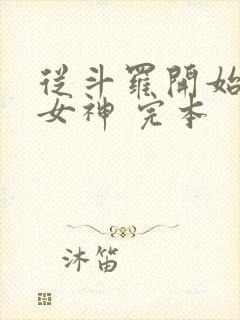 從斗羅開始
女神 完本
沐笛